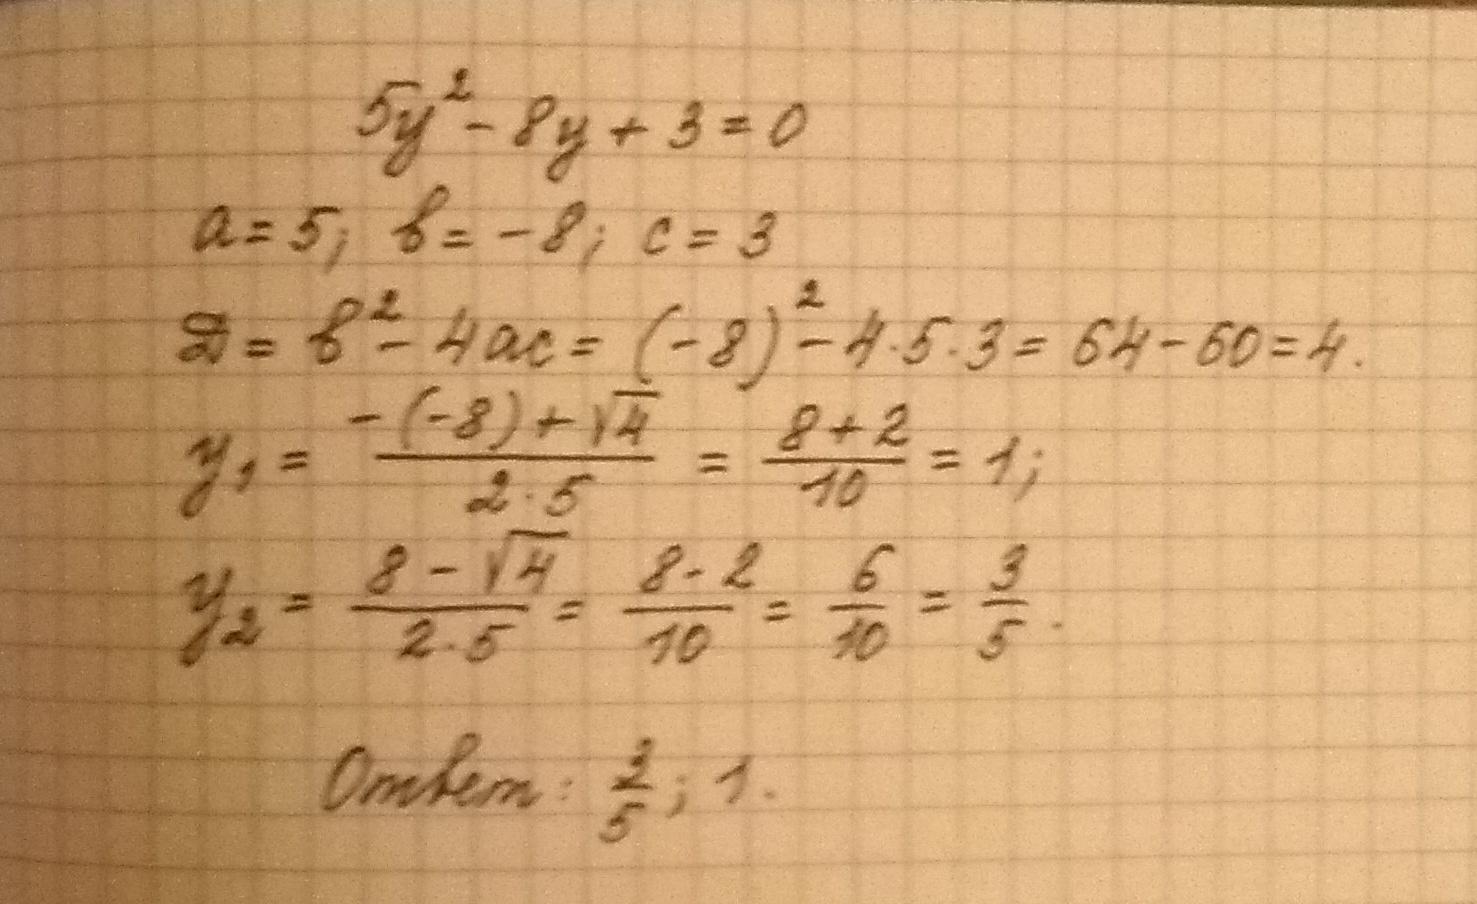 5y² - 8y + 3 = 0
a = 5; b = -8; c = 3
D = b² - 4ac = (-8)² - 4·5·3 = 64 - 60 = 4.
y₁ = (-(-8) + √4)/(2·5) = (8 + 2)/10 = 1;
y₂ = (8 - √4)/(2·5) = (8 - 2)/10 = 6/10 = 3/5.
Ответ: 3/5; 1.